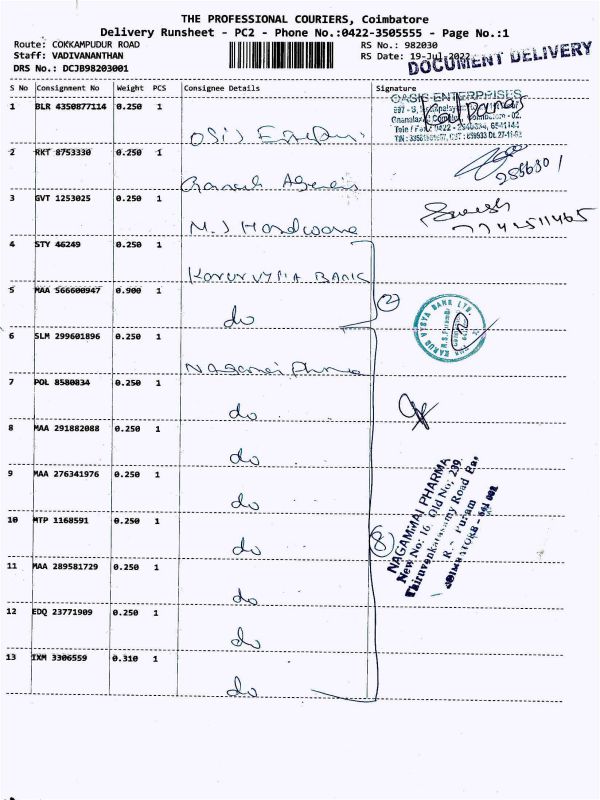 THE PROFESSIONAL COURIERS, Coimbatore
Delivery Runsheet - PC2 - Phone No.:0422-3505555 - Page No.:1
Route: COKKAMPUDUR ROAD
RS No.: 982030
Staff: VADIVANANTHAN
RS Date: 19-Jul-2022
DOCUMENT DELIVERY
DRS No.: DCJB98203001
S No Consignment No Weight PCS Consignee Details Signature
1 BLR 4350877114 0.250 1
OASIS ENTERPRISES
2 RKT 8753330 0.250 1
Ganesh Agencies
285630 1
3 GVT 1253025 0.250 1
M.J Hardware
Suresh
4 STY 46249 0.250 1
KARUR VYSYA BANK
5 MAA 566600947 0.900 1
do
2
KARUR VYSYA BANK LTD.
6 SLM 299601896 0.250 1
Nagamai Pharma
7 POL 8580834 0.250 1
do
8 MAA 291882088 0.250 1
do
9 MAA 276341976 0.250 1
do
10 MTP 1168591 0.250 1
do
8
NAGAMMAI PHARMA
New No: 16, Old No; 239,
Thiruvenkatasamy Road Ea
R.S. Puram
COIMBATORE - 641 001
11 MAA 289581729 0.250 1
do
12 EDQ 23771909 0.250 1
do
13 IXM 3306559 0.310 1
do